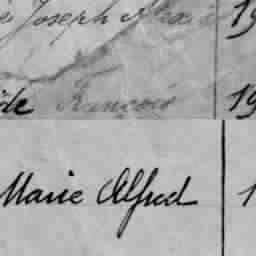 Joseph Alexi 19
de François 19
Marie Alfred 1